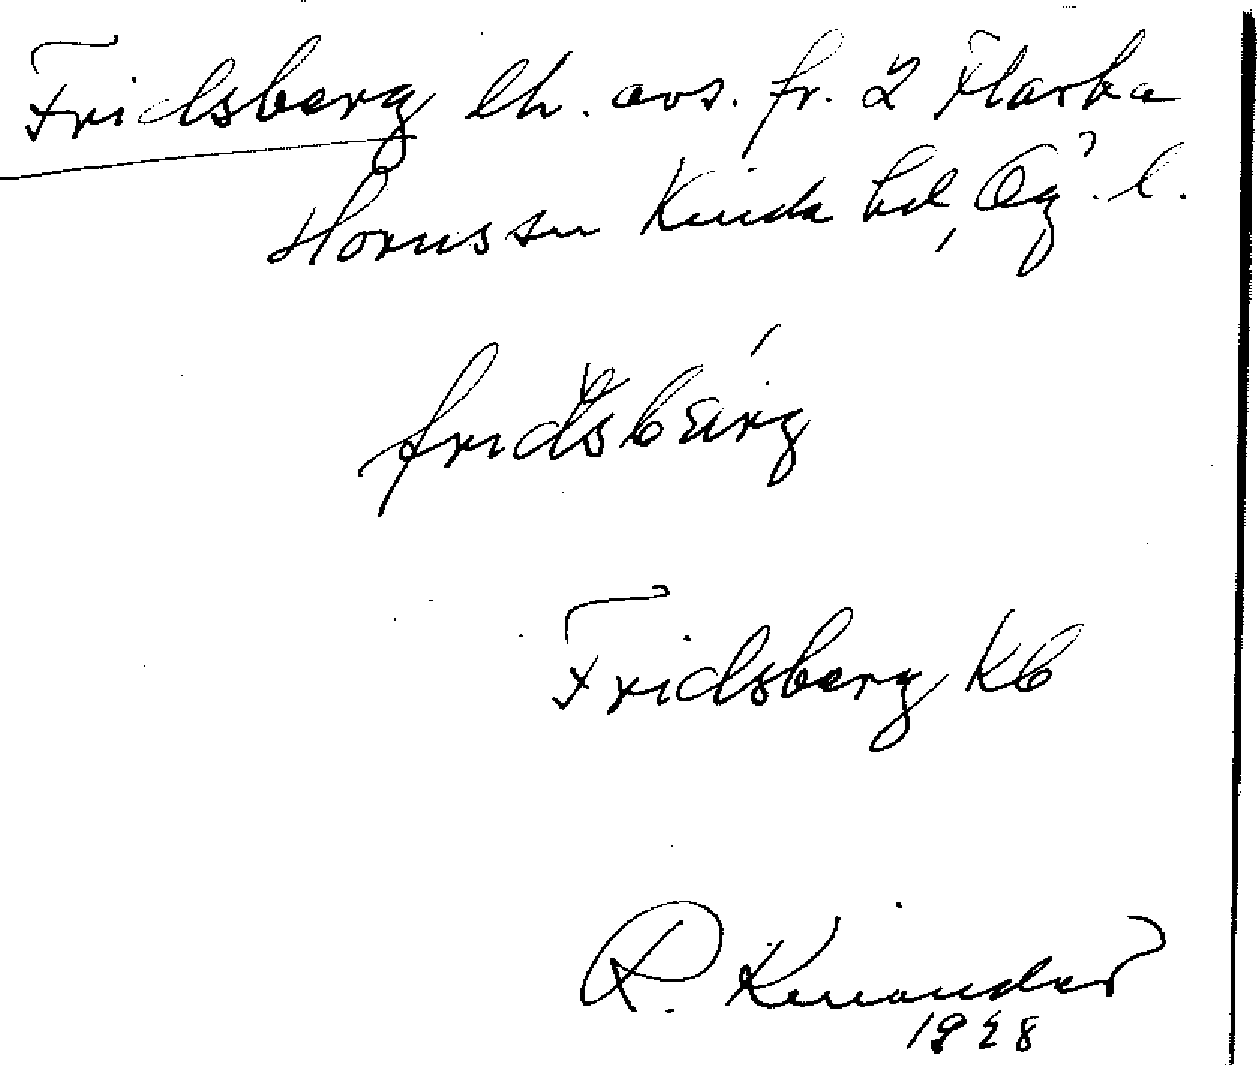 Fridsberg lh. avs. fr. 2 Flarka
Horn sn Kinda hd, Ög. l.
fridsbærg
Fridsberg Kb
R. Kinander
1928